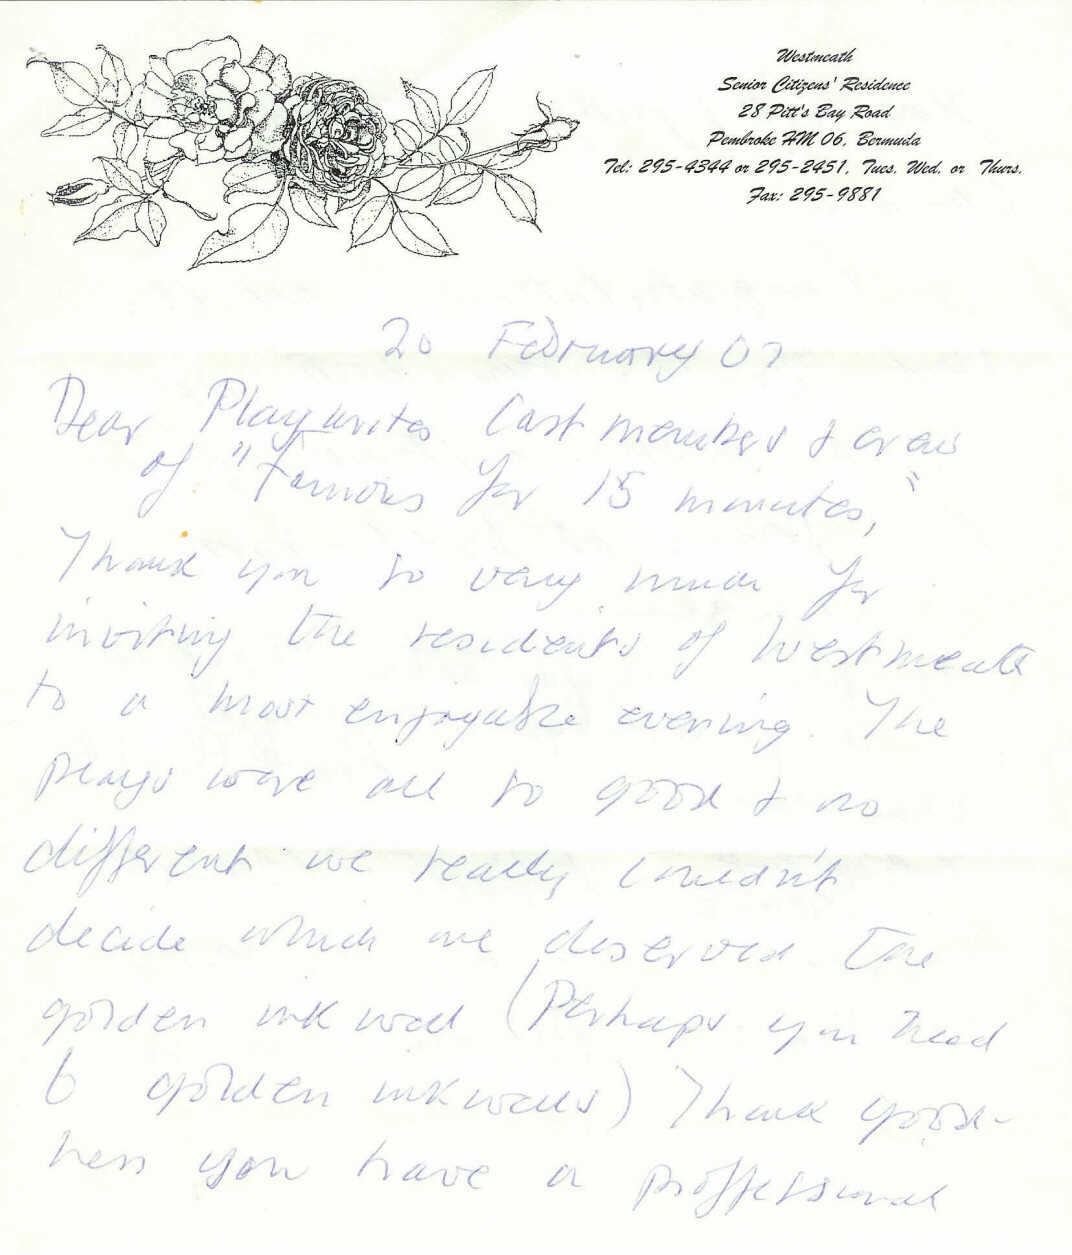 Westmeath
Senior Citizens' Residence
28 Pitt's Bay Road
Pembroke HM 06, Bermuda
Tel: 295-4344 or 295-2451, Tues. Wed. or Thurs.
Fax: 295-9881
20 February 07
Dear Playwrites Cast members & crew
of "Famous for 15 minutes,"
Thank you so very much for
inviting the residents of Westmeath
to a most enjoyable evening. The
plays were all so good & so
different we really couldn't
decide which one deserved the
golden ink well (Perhaps you need
6 golden inkwells) Thank good-
ness you have a proffessional